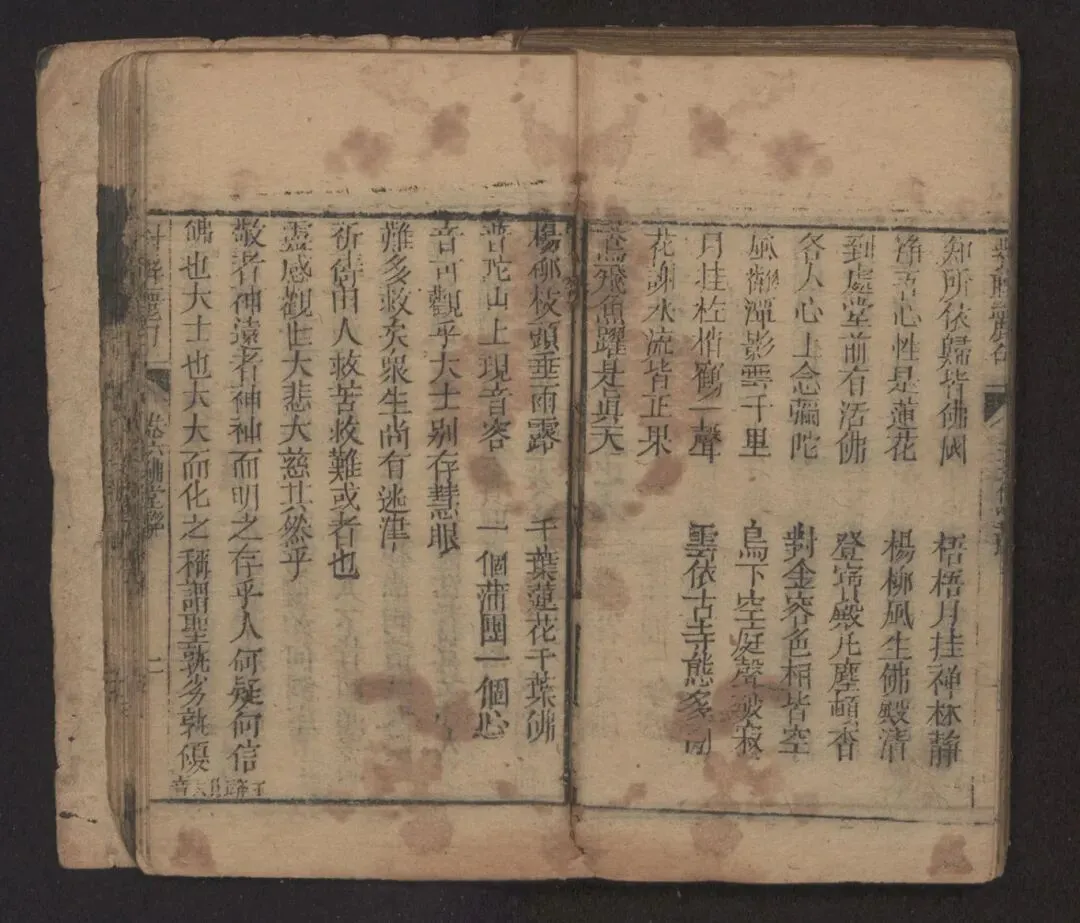 知所依歸皆佛國 梧梧月挂禅林靜
淨吾心性是蓮花 楊柳風生佛殿清
到處堂前有活佛 登寳殿凡塵頓杳
各人心上念彌陀 對金容色相皆空
潭影雲千里 鳥下空庭聲破寂
月挂松梢鶴一聲 雲依古寺態多
花謝水流皆正果
鳶飛魚躍是真天
楊柳枝頭垂雨露 千葉蓮花千葉佛
普陀山上現音容 一個蒲團一個心
音可觀乎大士别存慧眼
難多救矣衆生尚有迷津
祈儔由人救苦救難或者也
靈感觀世大悲大慈其然乎
敬者神遠者神神而明之存乎人何疑何信
佛也大士也大大而化之稱謂聖孰劣孰優
卷六佛堂聯
二